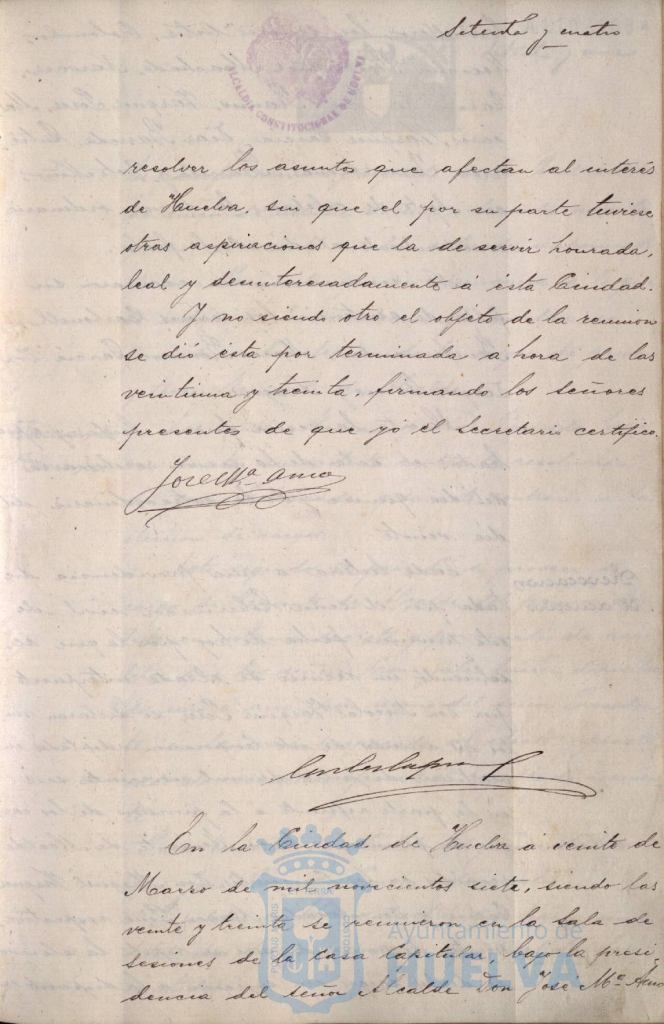 Setenta y cuatro
ALCALDIA CONSTITUCIONAL DE HUELVA
resolver los asuntos que afectan al interés
de Huelva, sin que el por su parte tuviese
otras aspiraciones que la de servir honrada,
leal y desinteresadamente á esta Ciudad.
Y no siendo otro el objeto de la reunion
se dió ésta por terminada á hora de las
veintiuna y treinta, firmando los señores
presentes de que yó el Secretario certifico.
Jose Mª Amo
En la Ciudad de Huelva á veinte de
Marzo de mil novecientos siete, siendo las
veinte y treinta se reunieron en la Sala de
sesiones de la Casa Capitular, bajo la presi-
dencia del señor Alcalde Don Jose Mª Amo
Ayuntamiento de
HUELVA